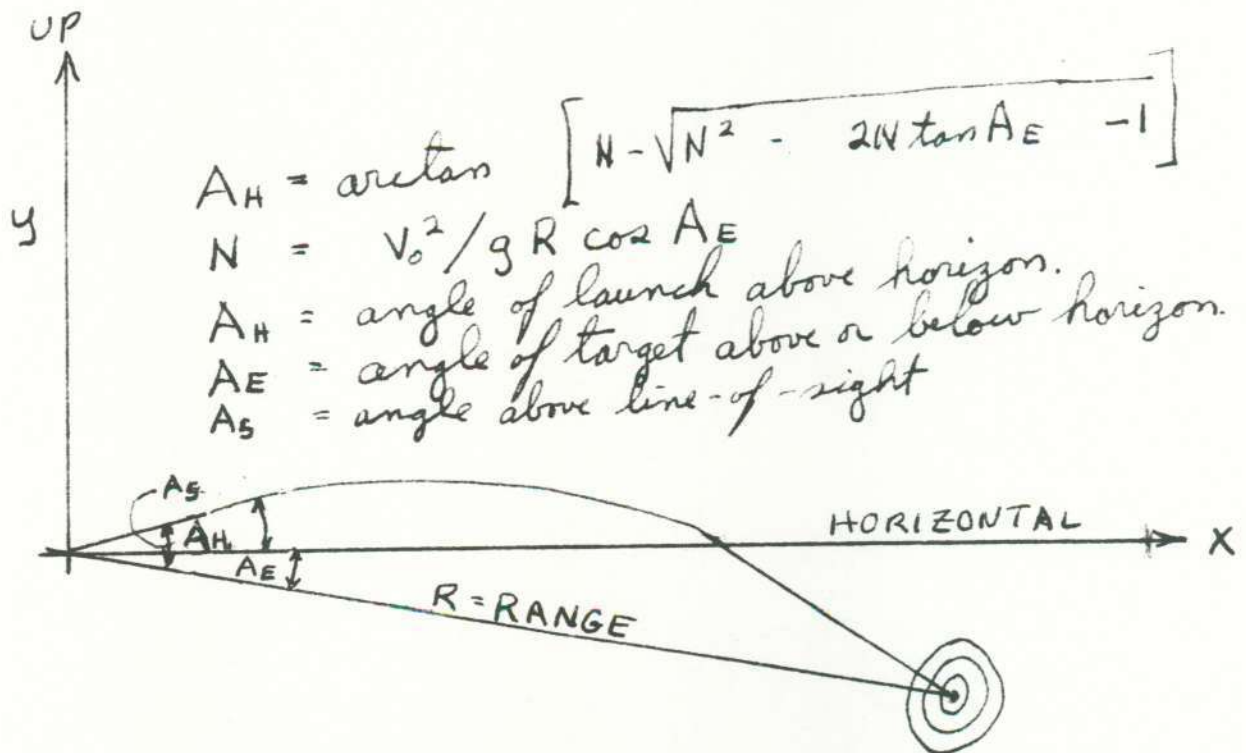 UP
y
A_H = arctan [N - √N² - 2N tan A_E - 1]
N = V₀² / g R cos A_E
A_H = angle of launch above horizon.
A_E = angle of target above or below horizon.
A_S = angle above line-of-sight
A_S
A_H
HORIZONTAL X
A_E
R = RANGE